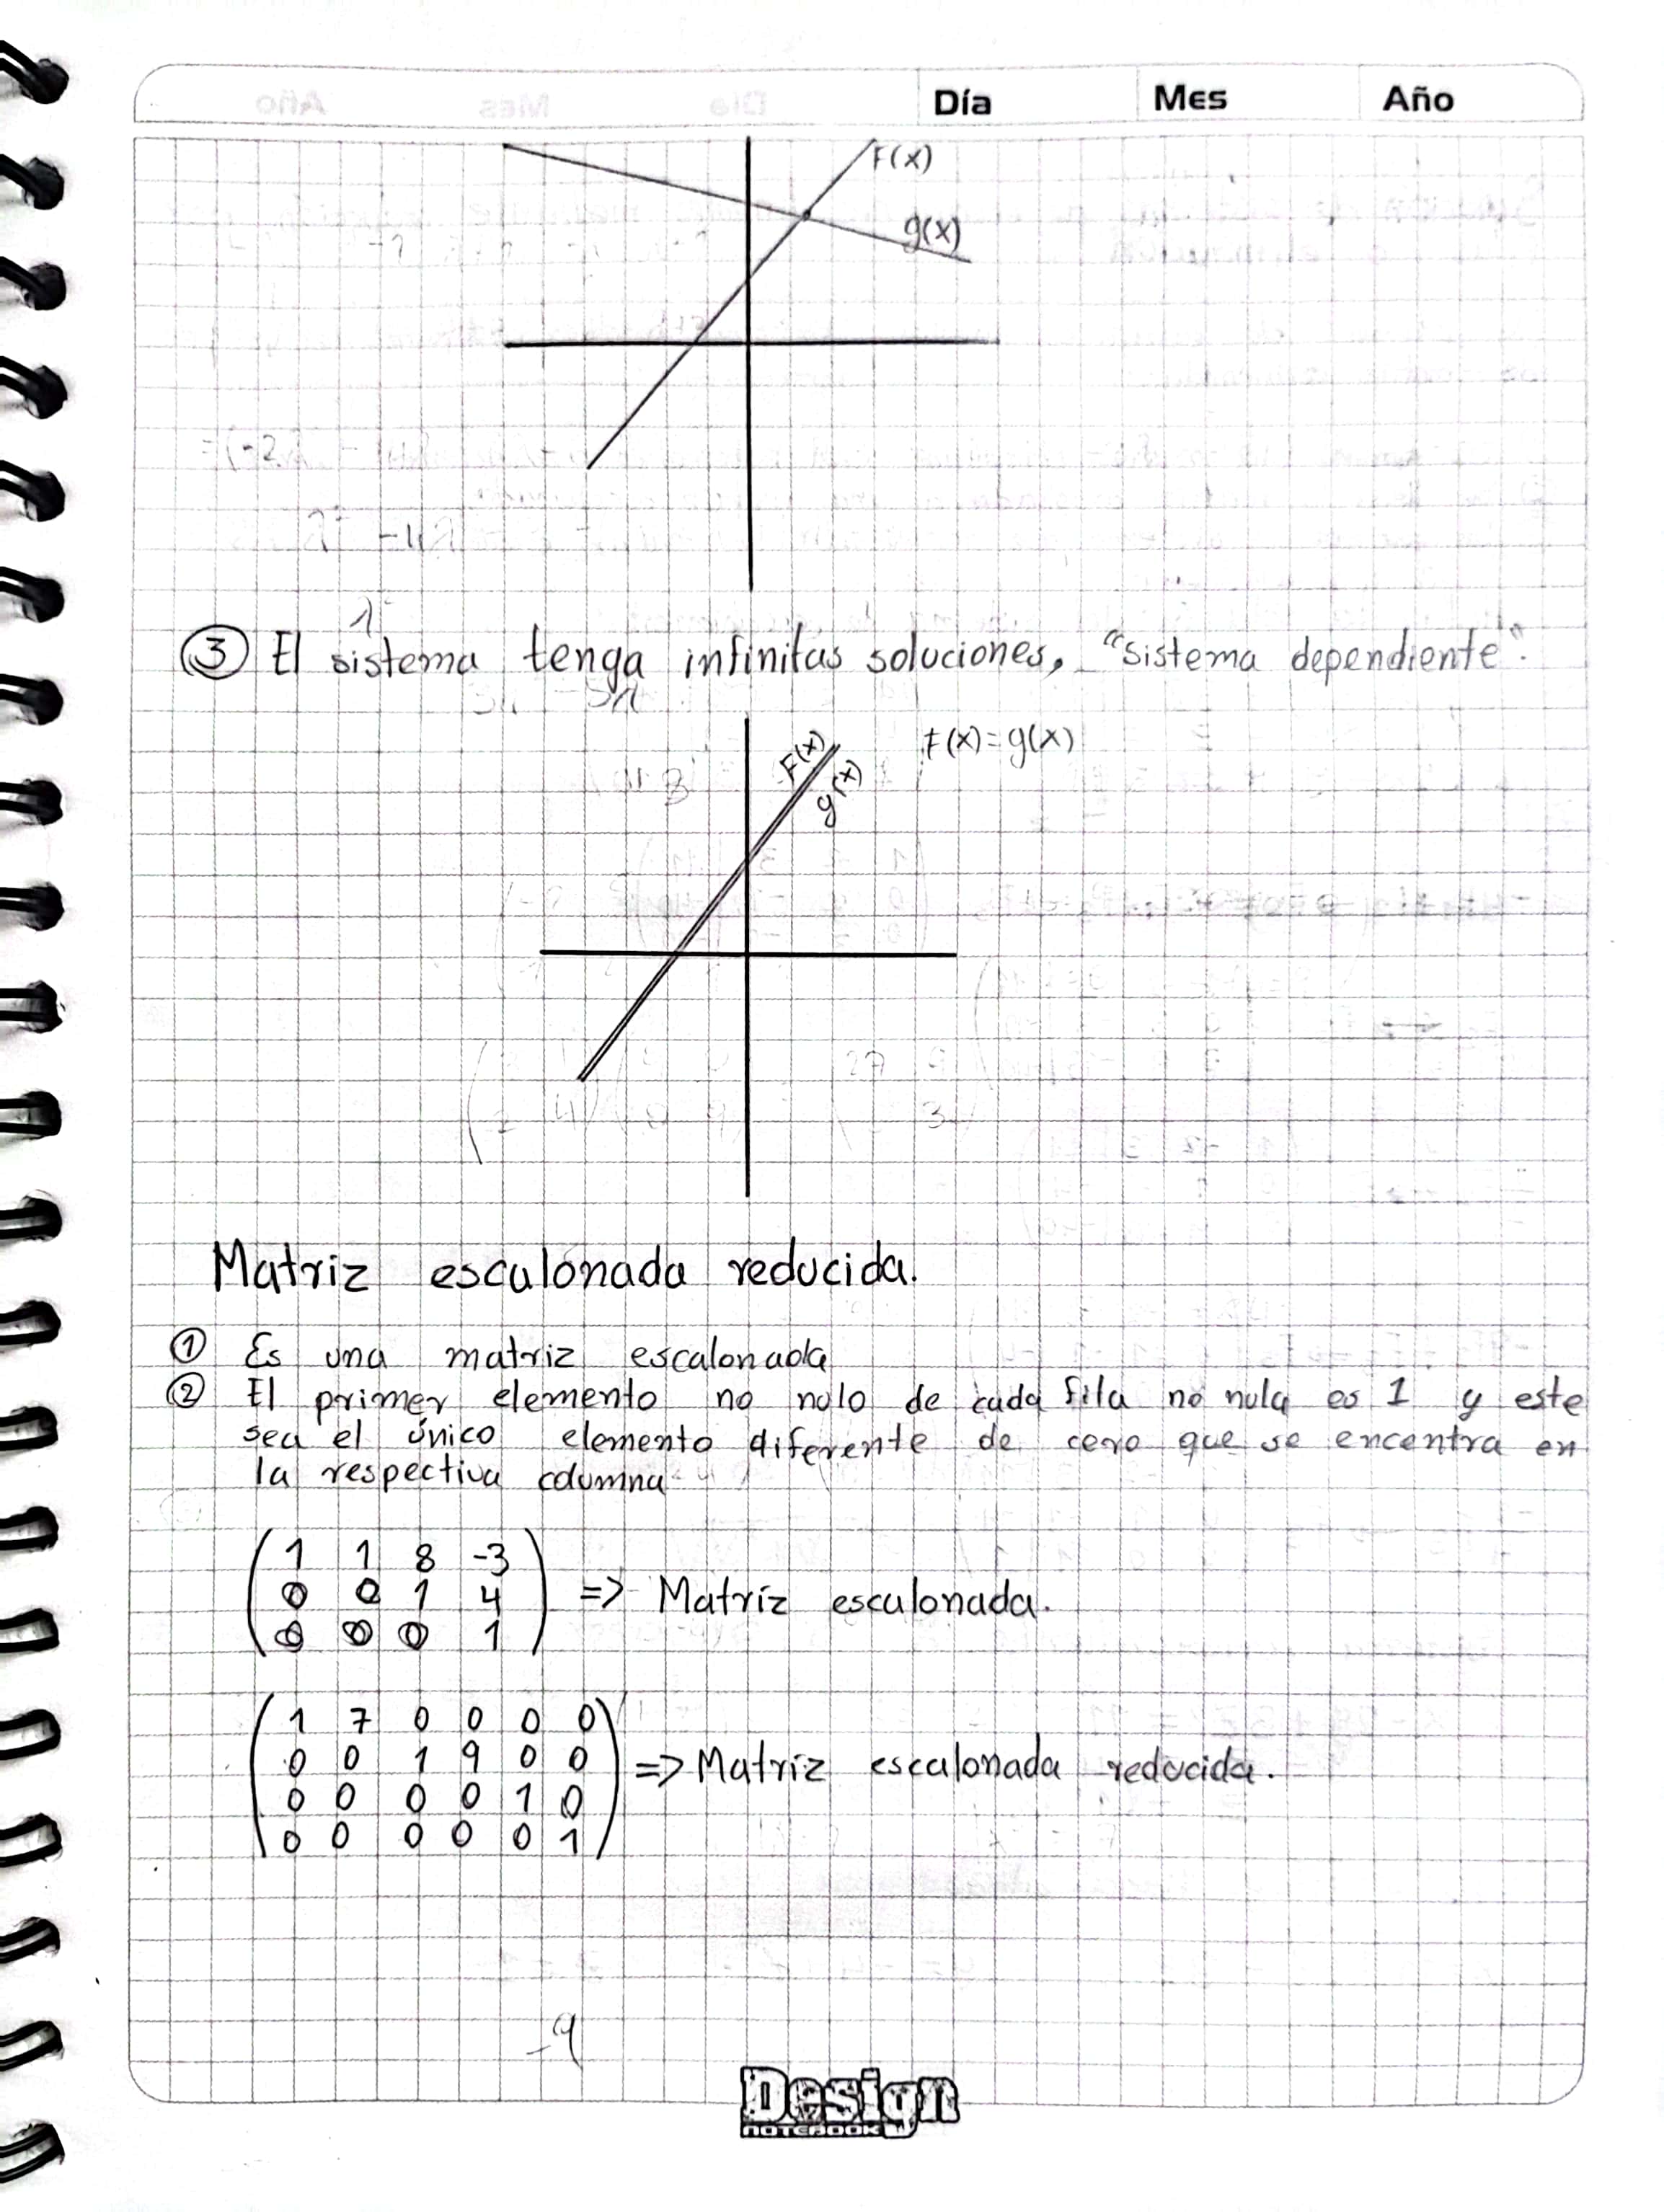 Día Mes Año
F(x)
g(x)
③ El sistema tenga infinitas soluciones, "sistema dependiente".
F(x) F(x)=g(x)
g(x)
Matriz escalonada reducida.
① Es una matriz escalonada
② El primer elemento no nulo de cada fila no nula es 1 y este
sea el único elemento diferente de cero que se encentra en
la respectiva columna
1 1 8 -3
0 0 1 4 => Matriz escalonada.
0 0 0 1
1 7 0 0 0 0
0 0 1 9 0 0 => Matriz escalonada reducida.
0 0 0 0 1 0
0 0 0 0 0 1
-9
Design
NOTEBOOK